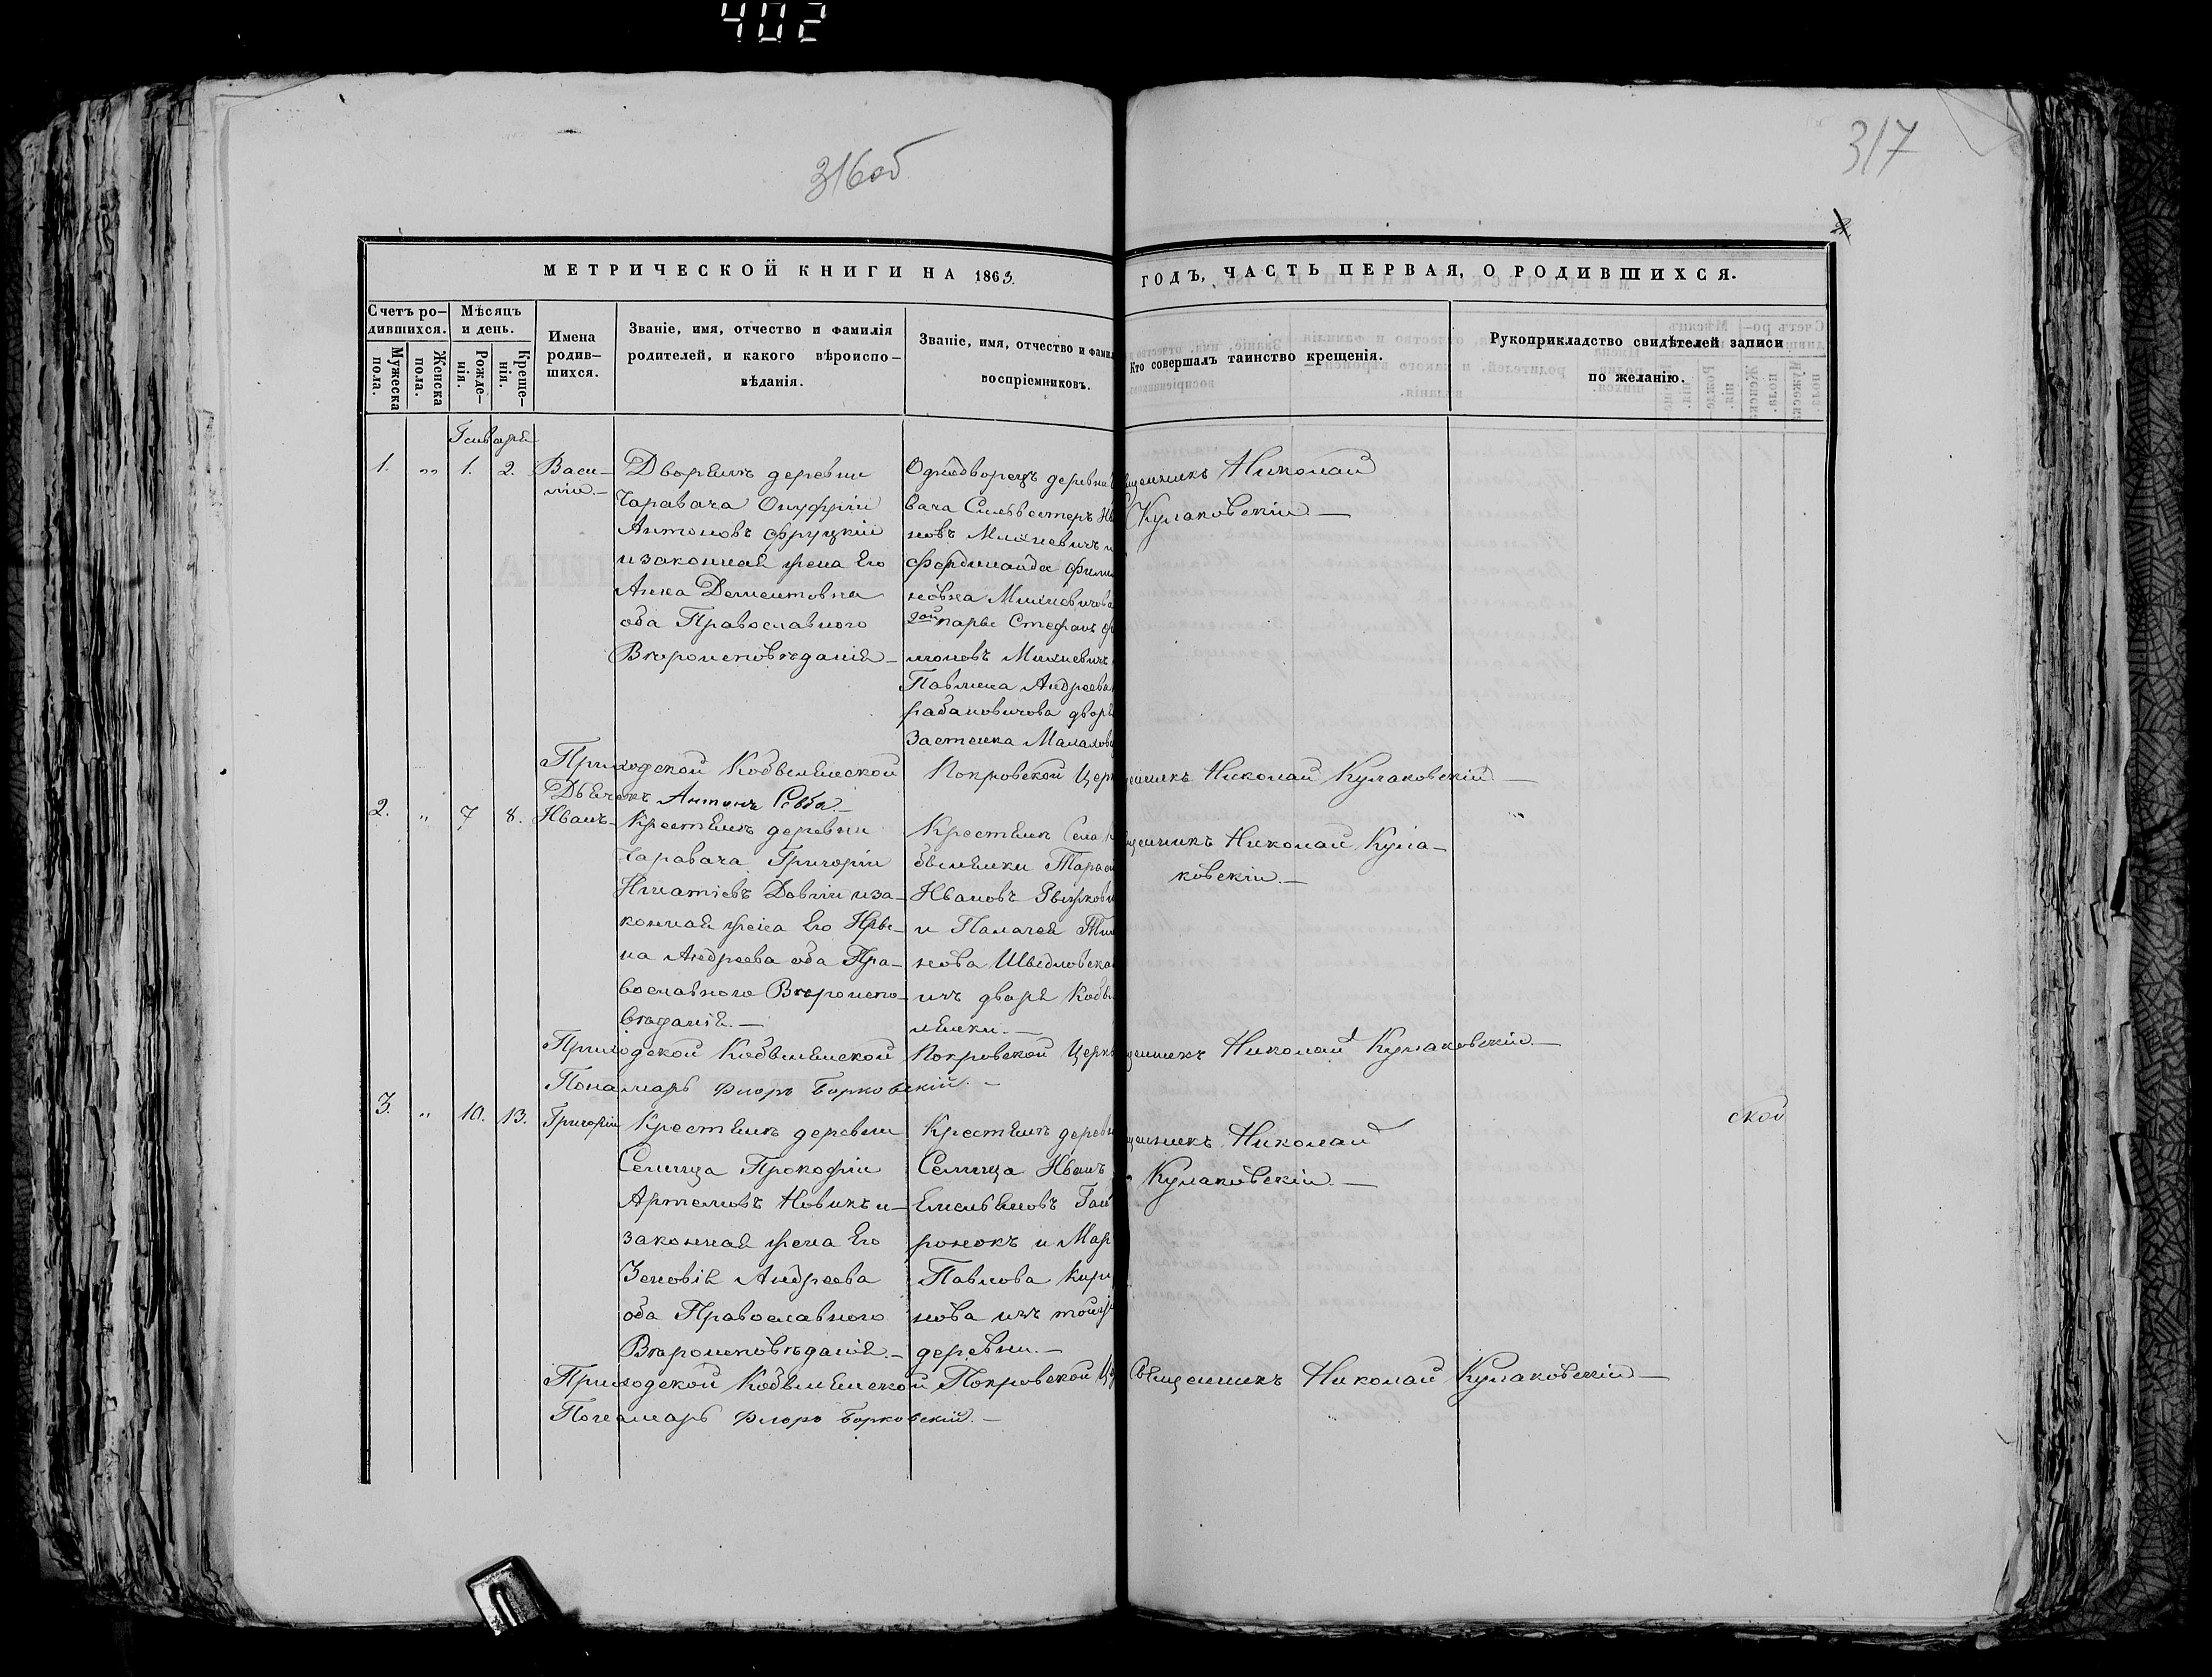 402
316об
317
МЕТРИЧЕСКОЙ КНИГИ НА 1863.
ГОДЪ, ЧАСТЬ ПЕРВАЯ, О РОДИВШИХСЯ.
Счетъ ро-
дившихся.
Мужеска
пола.
Женска
пола.
Мѣсяцъ
и день.
Рожде-
нія.
Креще-
нія.
Имена
родив-
шихся.
Званіе, имя, отчество и фамилія
родителей, и какого вѣроиспо-
вѣданія.
Званіе, имя, отчество и фамил
воспріемниковъ.
Кто совершалъ таинство крещенія.
Рукоприкладство свидѣтелей записи
по желанію.
Генваря
1. „ 1. 2.
Васи-
лій.-
Дворянъ деревни
Чаравача Онуфрій
Антоновъ Фруцкій
и законная жена Его
Анна Дементовна
оба Православного
Вѣроисповѣданія-
Однодворецъ деревни
вача Сильвестеръ
новъ Михневичъ и
Фердинанда
новна Михневичова
2ой парые Стефанъ
моновъ Михневичъ
Павлина Андреева
рабановичова двор
Застенка
щенникъ Николай
Кулаковскій.-
Приходской Кобыльнской Покровской Цер
Дьячекъ Антонъ
щенникъ Николай Кулаковскій.-
2. „ 7 8.
Иванъ-
Крестьянъ деревни
Чаравача Григорій
Игнатіевъ Довгій и за-
конная жена Его Ири-
на Андреева оба Пра-
вославного Вѣроиспо-
вѣданія.-
Крестьянъ Села
Тарас
Ивановъ
и Палагея
нова
изъ дворя Кобы
лянки.-
щенникъ Николай Кула-
ковскій.-
Приходской Кобыльнской Покровской Церкв
Понамарь Флоръ Борковскій.-
щенникъ Николай Кулаковскій.-
3. „ 10. 13.
Григорій
Крестьянъ деревни
Селища Прокофій
Артемовъ Новикъ и-
законная жена Его
Зеновія Андреева
оба Православного
Вѣроисповѣданія.-
Крестьянъ деревн
Селища Иванъ
Емельяновъ Гай
ронокъ и Мар
Павлова Кири
нова изъ тойж
деревни.-
щенникъ Николай
Кулаковскій.-
ской
Приходской Кобыльнской Покровской Це
Понамарь Флоръ Борковскій.-
Священникъ Николай Кулаковскій-